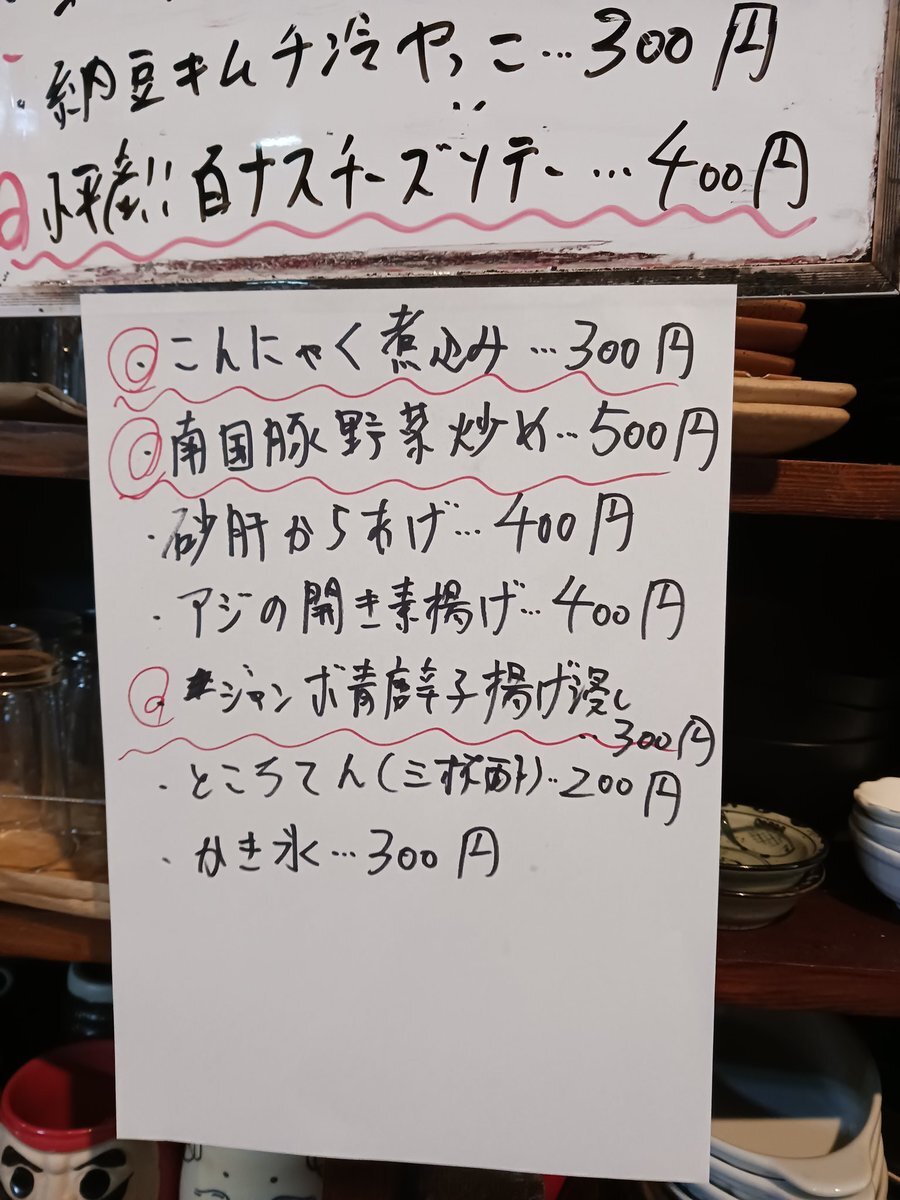 ・納豆キムチ冷やっこ…300円
白ナスチーズソテー…400円
・こんにゃく煮込み…300円
・南国豚野菜炒め…500円
・砂肝からあげ…400円
・アジの開き素揚げ…400円
・ジャンボ青唐辛子揚げ浸し
…300円
・ところてん(三杯酢)…200円
・かき氷…300円